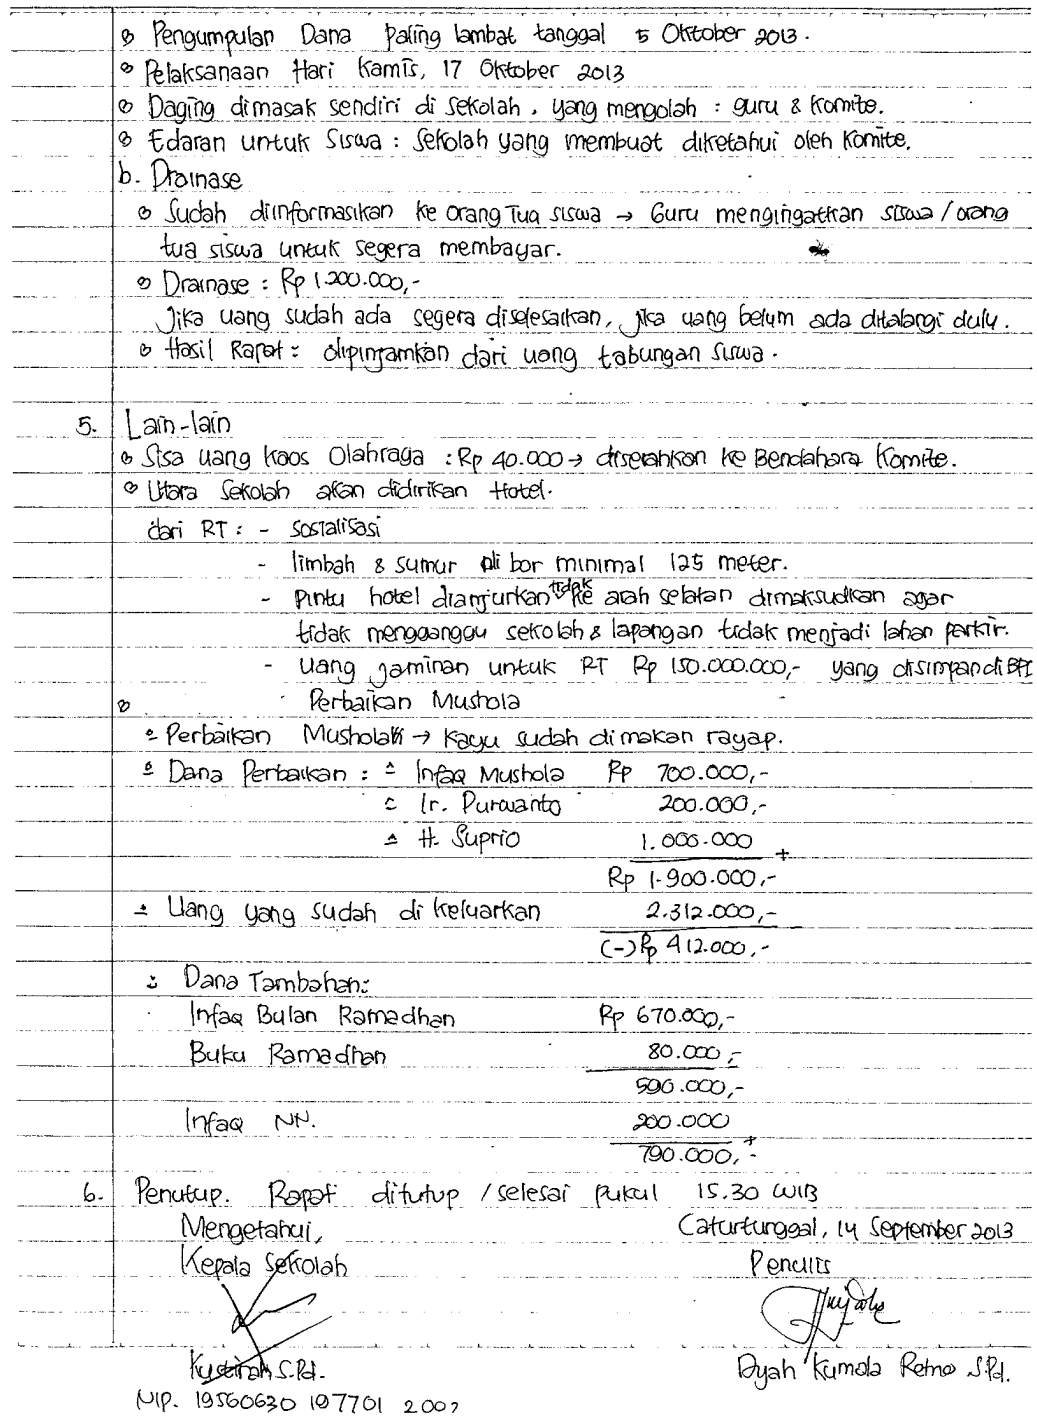 Pengumpulan Dana paling lambat tanggal 5 Oktober 2013.
Pelaksanaan Hari Kamis, 17 Oktober 2013
Daging dimasak sendiri di sekolah, yang mengolah : guru & komite.
Edaran untuk Siswa : Sekolah yang membuat diketahui oleh Komite.
b. Drainase
Sudah diinformasikan ke Orang Tua siswa → Guru mengingatkan siswa / orang
tua siswa untuk segera membayar.
Drainase : Rp 1.200.000,-
Jika uang sudah ada segera diselesaikan, jika uang belum ada ditalangi dulu.
Hasil Rapat : dipinjamkan dari uang tabungan siswa.
5. Lain-lain
Sisa uang kaos Olahraga : Rp 40.000 → diserahkan ke Bendahara Komite.
Utara Sekolah akan didirikan Hotel.
dari RT : - sosialisasi
- limbah & sumur di bor minimal 125 meter.
- Pintu hotel dianjurkan tidak ke arah selatan dimaksudkan agar
tidak mengganggu sekolah & lapangan tidak menjadi lahan parkir.
- Uang jaminan untuk RT Rp 150.000.000,- yang disimpan di BPI
Perbaikan Mushola
Perbaikan Musholah → kayu sudah di makan rayap.
Dana Perbaikan : - Infaq Mushola Rp 700.000,-
- Ir. Purwanto 200.000,-
- H. Suprio 1.000.000 +
Rp 1.900.000,-
Uang yang sudah di keluarkan 2.312.000,-
(-) Rp 412.000,-
Dana Tambahan:
Infaq Bulan Ramadhan Rp 670.000,-
Buku Ramadhan 80.000,-
590.000,-
Infaq NN. 200.000 +
790.000,-
6. Penutup. Rapat ditutup / selesai pukul 15.30 WIB
Mengetahui, Caturtunggal, 14 September 2013
Kepala Sekolah Penulis
Kustinah S.Pd. Dyah Kumala Retno S.Pd.
NIP. 19560630 197701 2002